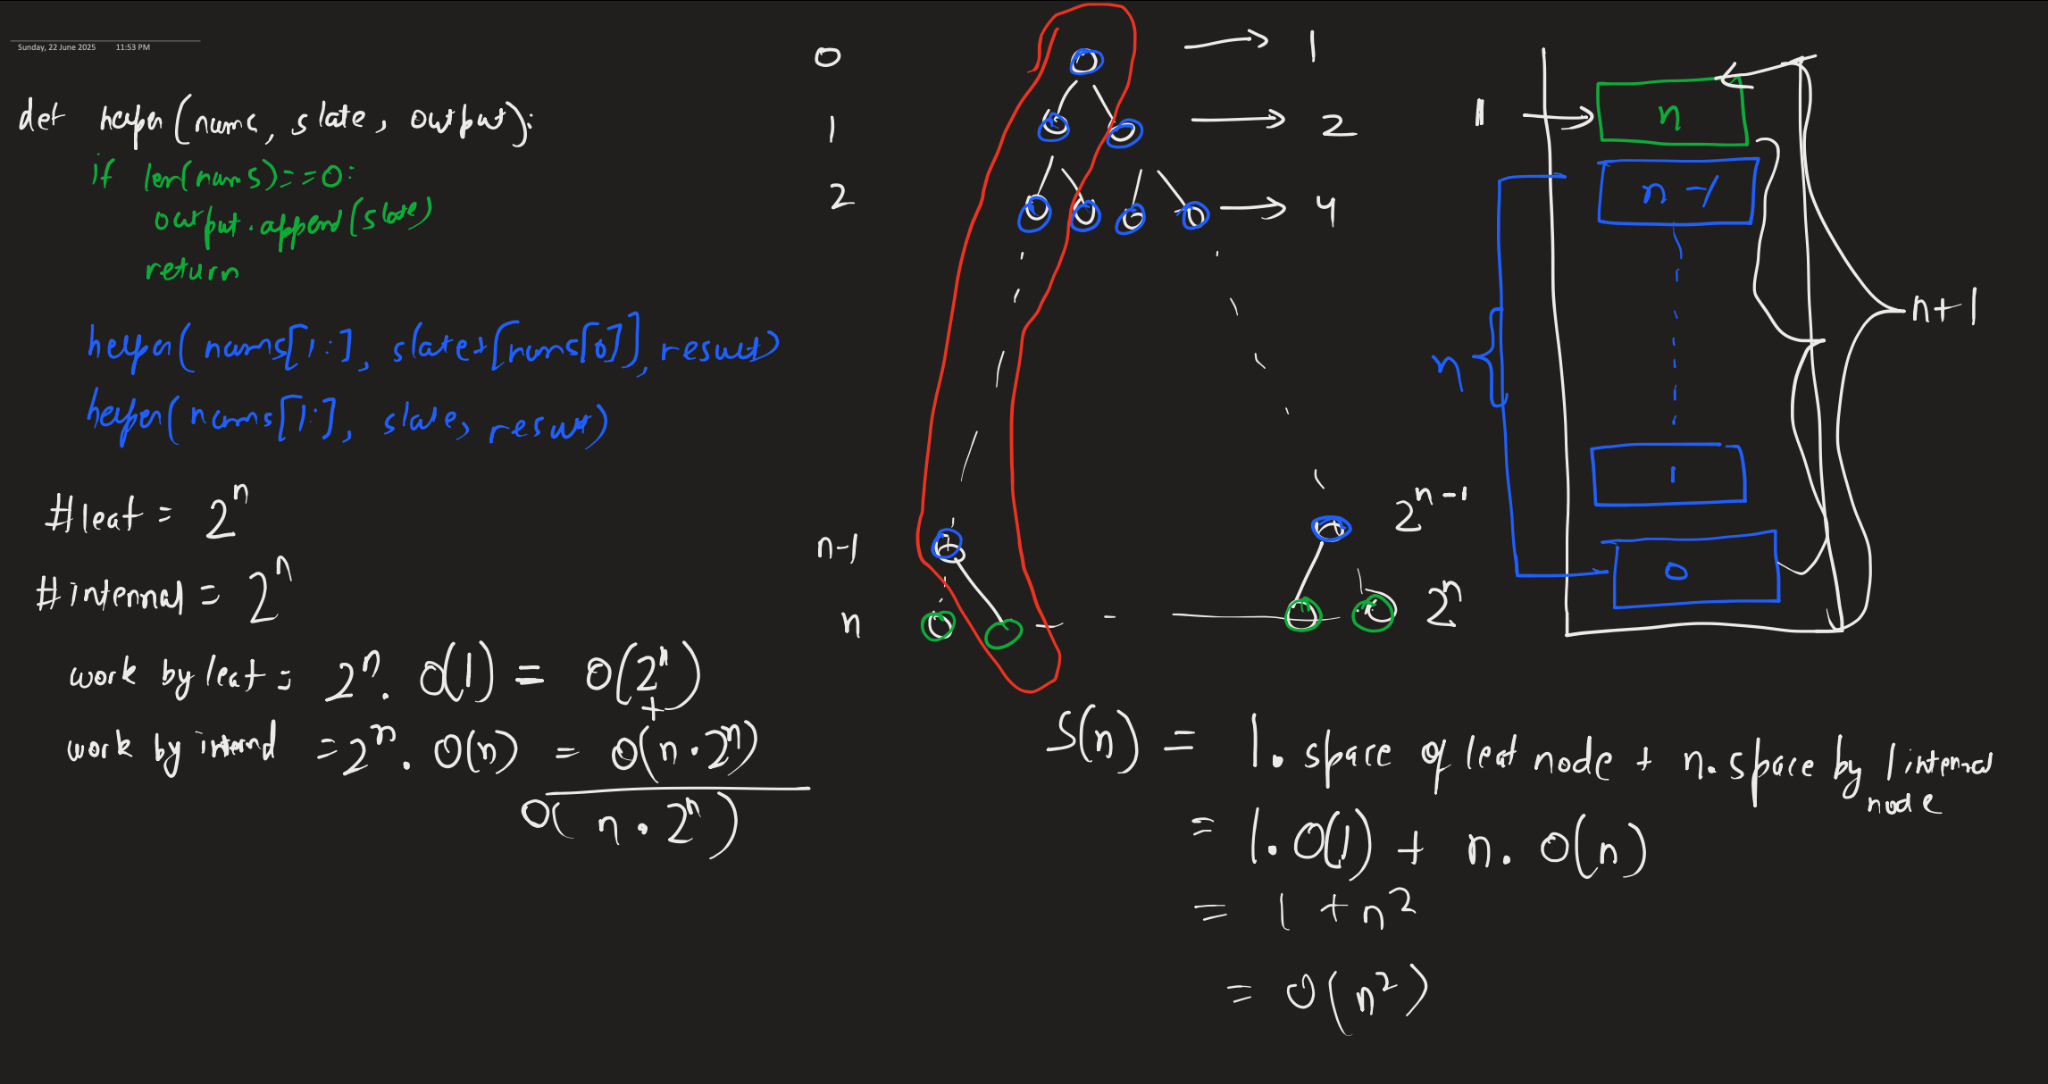 Sunday, 22 June 2025 11:53 PM
def helper(nums, slate, output):
if len(nums)==0:
output.append(slate)
return
helper(nums[1:], slate+[nums[0]], result)
helper(nums[1:], slate, result)
#leaf = 2^n
#internal = 2^n
work by leaf = 2^n . O(1) = O(2^n)
+
work by internal = 2^n . O(n) = O(n.2^n)
O(n.2^n)
0 → 1
1 → 2
2 → 4
n-1 2^n-1
n 2^n
1 → n
n-1
n
1
0
n+1
S(n) = 1. space of leaf node + n. space by 1 internal
node
= 1.O(1) + n. O(n)
= 1 + n^2
= O(n^2)